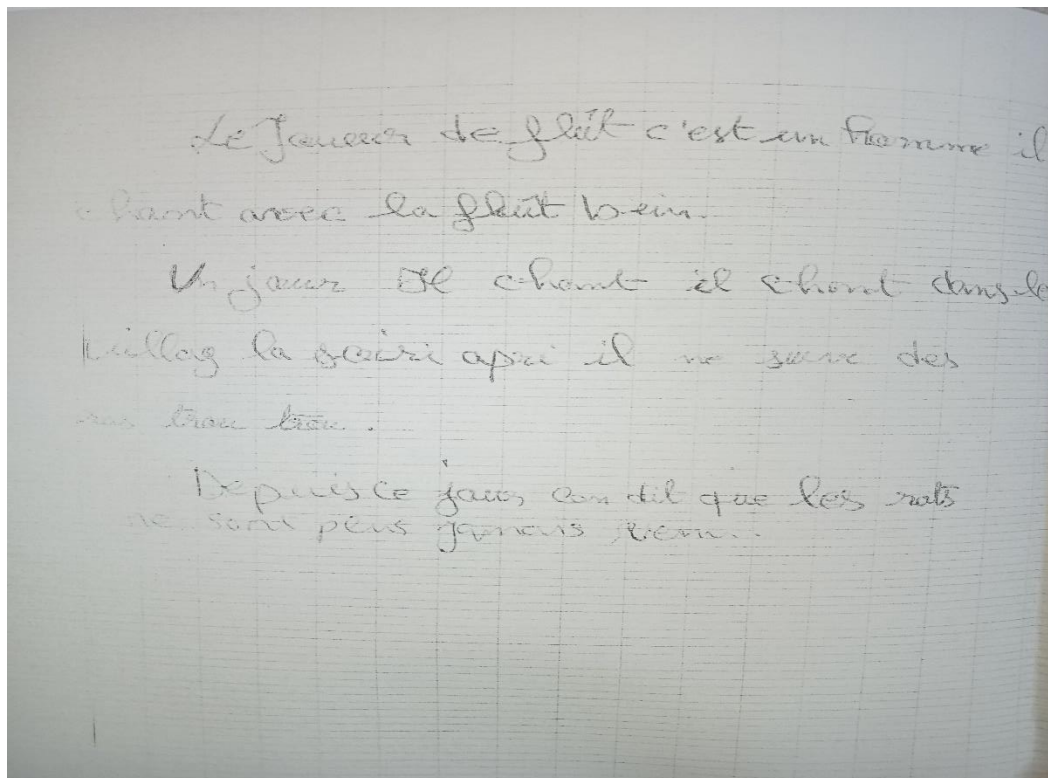 Le Joueur de flût c'est un homme il
chant avec la flût bein.
Un jour Il chant il chant dans le
villag la souri apri il ne suive des
ras trou trou.
Depuis ce jour on dit que les rats
ne sont plus jamais venu..